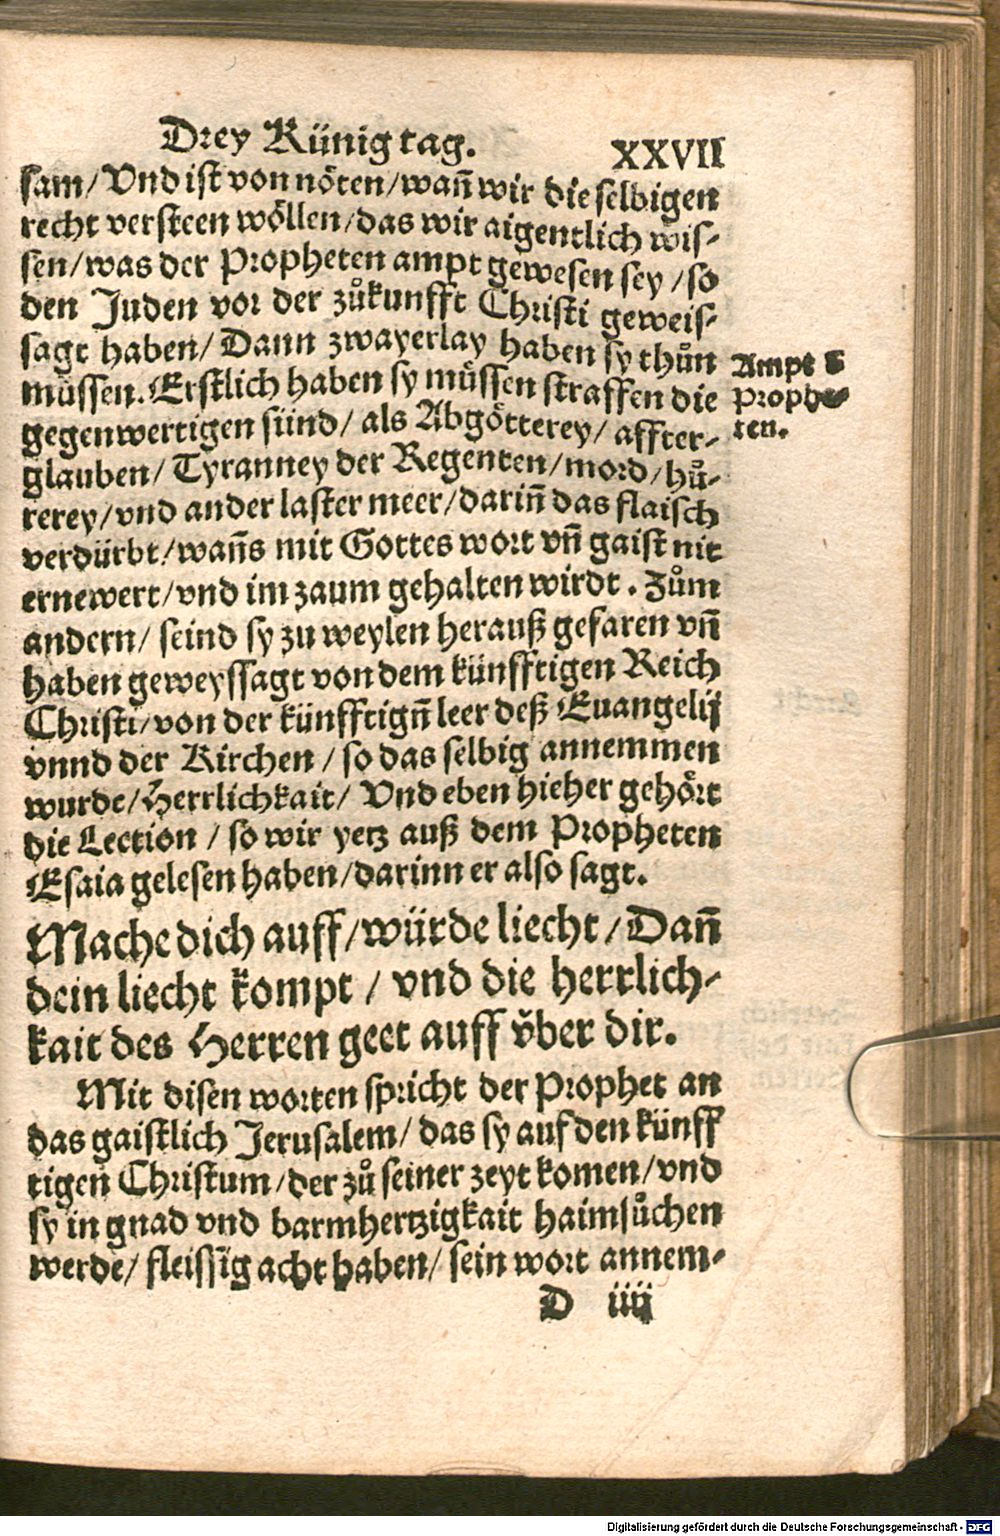 Drey Künig tag. XXVII
sam/ Vnd ist von nöten/ wañ wir die selbigen
recht versteen wöllen/ das wir aigentlich wis-
sen/ was der Propheten ampt gewesen sey/ so
den Juden vor der zůkunfft Christi geweis-
sagt haben/ Dann zwayerlay haben sy thůn
müssen. Erstlich haben sy müssen straffen die
gegenwertigen sünd/ als Abgötterey/ affter-
glauben/ Tyranney der Regenten/ mord/ hů-
rerey/ vnd ander laster meer/ dariñ das flaisch
verdürbt/ wañs mit Gottes wort vñ gaist nit
ernewert/ vnd im zaum gehalten wirdt. Zům
andern/ seind sy zu weylen herauß gefaren vñ
haben geweyssagt von dem künfftigen Reich
Christi/ von der künfftigñ leer deß Euangelij
vnnd der Kirchen/ so das selbig annemmen
wurde/ Herrlichkait/ Vnd eben hieher gehört
die Lection/ so wir yetz auß dem Propheten
Esaia gelesen haben/ darinn er also sagt.
Mache dich auff/ würde liecht/ Dañ
dein liecht kompt/ vnd die herrlich-
kait des Herren geet auff v̌ber dir.
Mit disen worten spricht der Prophet an
das gaistlich Jerusalem/ das sy auf den künff
tigen Christum/ der zů seiner zeyt komen/ vnd
sy in gnad vnd barmhertzigkait haimsůchen
werde/ fleissig acht haben/ sein wort annem-
D iiij
Ampt
Prophe-
ten.
Digitalisierung gefördert durch die Deutsche Forschungsgemeinschaft - DFG